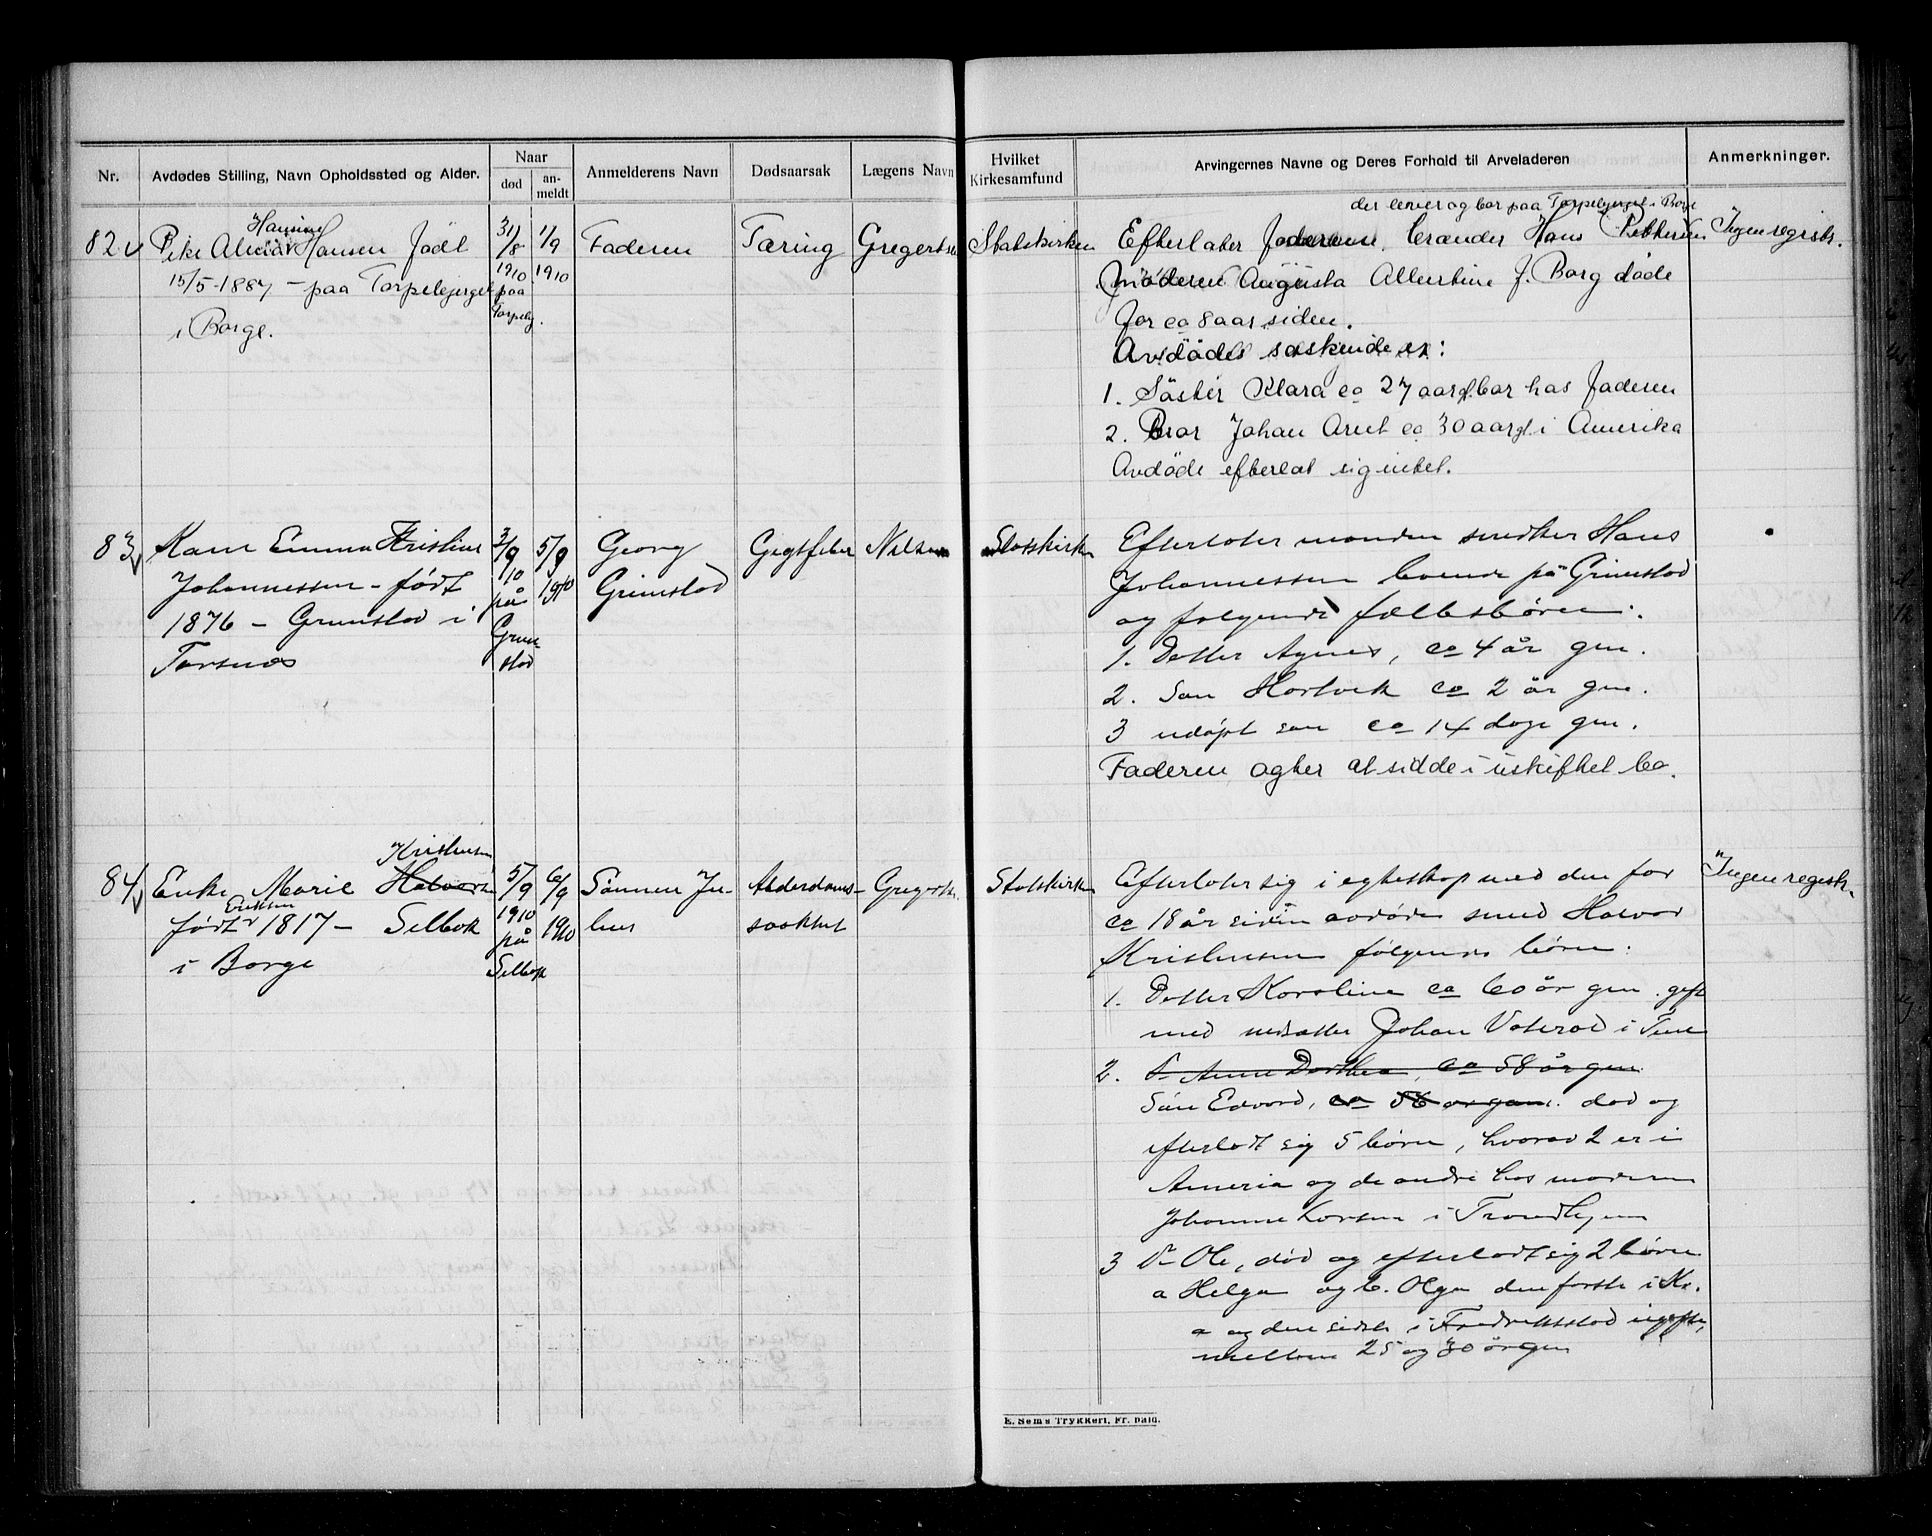 Nr.
Avdødes Stilling, Navn Opholdssted og Alder.
Naar
død
an-
meldt
Anmelderens Navn
Dødsaarsak
Lægens Navn
Hvilket
Kirkesamfund
Arvingernes Navne og Deres Forhold til Arveladeren
Anmerkninger.
82
Hansine
Pike Hansen födt
15/5-1887 - paa Torpebjerget
i Borge.
31/8
1910
paa
Torpebj.
1/9
1910
Faderen
Tæring
Gregertsen
Statskirken
der lever og bor paa Torpebjerget i Borge
Efterlater faderen, Hans Pettersen
Moderen Augusta Albertine f. Borg døde
for ca 8 aar siden.
Avdødes søskende er:
1. Søster Klara ca 27 aar gl. bor hos faderen
2. Bror Johan Arnt ca 30 aar gl. i Amerika
Avdøde efterlot sig intet.
Ingen registr.
83
Kone Emma Kristine
Johannessen - født
1876 - Grimstad i
Torsnes
3/9
10
på
Grim-
stad
5/9
1910
Georg
Grimstad
Gigtfeber
Nilsen
Statskirken
Efterlater manden snedker Hans
Johannessen boende på Grimstad
og følgende fællesbörn:
1. Datter Agnes, ca 4 år gm.
2. Søn Hartvik ca 2 år gm.
3 udøpt søn ca 14 dage gm.
Faderen agter at sidde i uskiftet bo.
84
Kristensen
Enke Marie Halvorsen
Eriksen
født 1817 - Selbak
i Borge
5/9
1910
på
Selbak
6/9
1910
Sønnen Ju-
lius
Alderdoms-
svakhet
Gregerts.
Statskirken
Efterlater sig i egteskap med den for
ca 18 år siden avdøde smed Halvor
Kristensen følgende börn:
1. Datter Karoline ca 60 år gm. gift
med Johan Vaterod i Tune
2. D- Anne Dorthea, ca 58 år gm
Søn Edvard, ca 56 år gm. død og
efterlodt sig 5 börn, hvorav 2 er i
Ameria og de andre hos moderen
Johanne Larsen i Trondhjem
3 D- Ole, død og efterlodt sig 2 börn
a Helga og b. Olga den første i Kr.
a og den sidste i Fredrikstad ugifte,
mellem 25 og 30 år gm
Ingen registr.
E. Sems Trykkeri, Fr.hald.